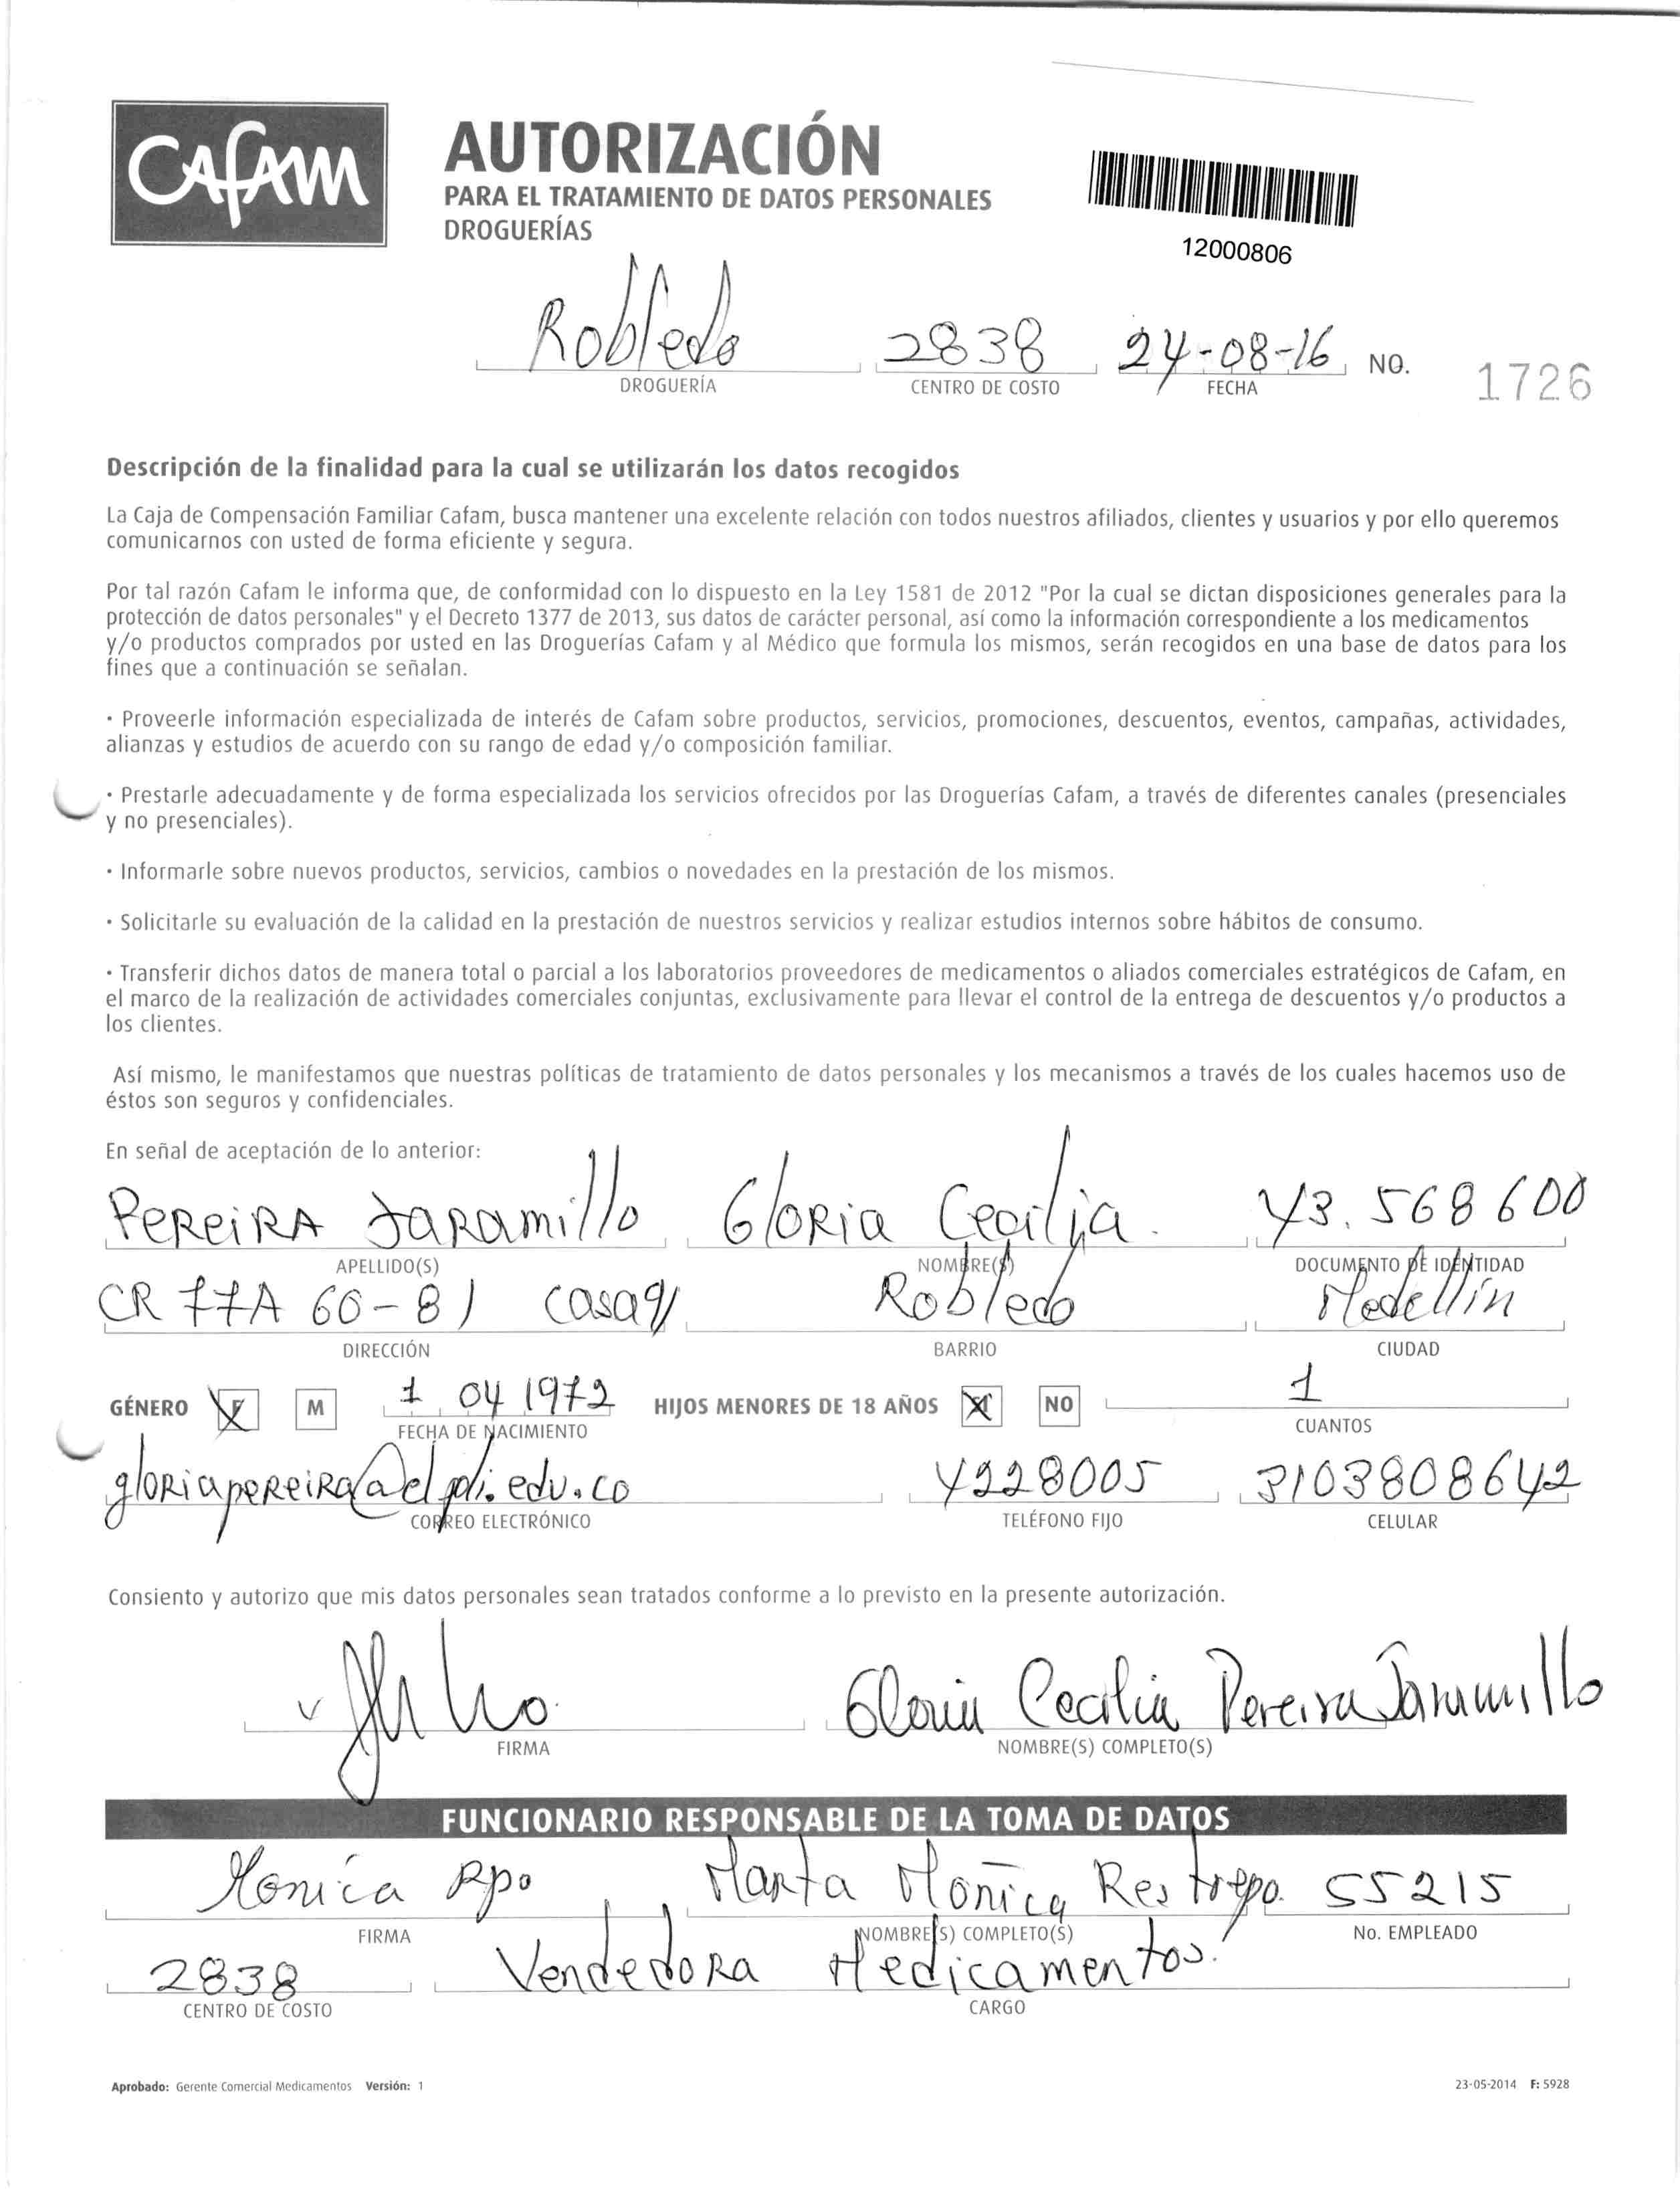 CAFAM
AUTORIZACIÓN
PARA EL TRATAMIENTO DE DATOS PERSONALES
DROGUERÍAS
12000806
Robledo 2838 24-08-16 NO. 1726
DROGUERÍA CENTRO DE COSTO FECHA
Descripción de la finalidad para la cual se utilizarán los datos recogidos
La Caja de Compensación Familiar Cafam, busca mantener una excelente relación con todos nuestros afiliados, clientes y usuarios y por ello queremos
comunicarnos con usted de forma eficiente y segura.
Por tal razón Cafam le informa que, de conformidad con lo dispuesto en la Ley 1581 de 2012 "Por la cual se dictan disposiciones generales para la
protección de datos personales" y el Decreto 1377 de 2013, sus datos de carácter personal, así como la información correspondiente a los medicamentos
y/o productos comprados por usted en las Droguerías Cafam y al Médico que formula los mismos, serán recogidos en una base de datos para los
fines que a continuación se señalan.
· Proveerle información especializada de interés de Cafam sobre productos, servicios, promociones, descuentos, eventos, campañas, actividades,
alianzas y estudios de acuerdo con su rango de edad y/o composición familiar.
· Prestarle adecuadamente y de forma especializada los servicios ofrecidos por las Droguerías Cafam, a través de diferentes canales (presenciales
y no presenciales).
· Informarle sobre nuevos productos, servicios, cambios o novedades en la prestación de los mismos.
· Solicitarle su evaluación de la calidad en la prestación de nuestros servicios y realizar estudios internos sobre hábitos de consumo.
· Transferir dichos datos de manera total o parcial a los laboratorios proveedores de medicamentos o aliados comerciales estratégicos de Cafam, en
el marco de la realización de actividades comerciales conjuntas, exclusivamente para llevar el control de la entrega de descuentos y/o productos a
los clientes.
Así mismo, le manifestamos que nuestras políticas de tratamiento de datos personales y los mecanismos a través de los cuales hacemos uso de
éstos son seguros y confidenciales.
En señal de aceptación de lo anterior:
PEREIRA JARAMILLO Gloria Cecilia 43.568600
APELLIDO(S) NOMBRE(S) DOCUMENTO DE IDENTIDAD
CR 77A 60-81 casa91 Robledo Medellín
DIRECCIÓN BARRIO CIUDAD
GÉNERO F M 1 04 1972 HIJOS MENORES DE 18 AÑOS SI NO 1
FECHA DE NACIMIENTO CUANTOS
gloriapereira@elpoli.edu.co 4228005 3103808642
CORREO ELECTRÓNICO TELÉFONO FIJO CELULAR
Consiento y autorizo que mis datos personales sean tratados conforme a lo previsto en la presente autorización.
Gloria Cecilia Pereira Jaramillo
FIRMA NOMBRE(S) COMPLETO(S)
FUNCIONARIO RESPONSABLE DE LA TOMA DE DATOS
Monica Rpo Marta Monica Restrepo 55215
FIRMA NOMBRE(S) COMPLETO(S) No. EMPLEADO
2838 Vendedora Medicamentos
CENTRO DE COSTO CARGO
Aprobado: Gerente Comercial Medicamentos Versión: 1 23-05-2014 F: 5928